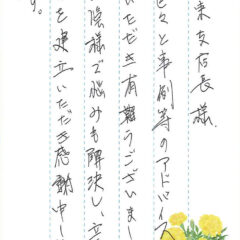 東支店長様
色々と事例等のアドバイス
いただき有難うございまし
陰様で悩みも解決し、立
を建立いただき感動申し
す。